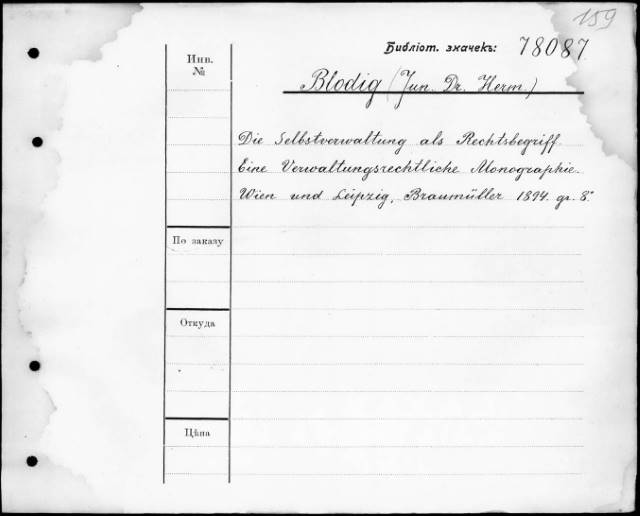 159
Библіот. значекъ: 78087
Инв.
№
Blodig (Jun. Dr. Herm.)
Die Selbstverwaltung als Rechtsbegriff.
Eine Verwaltungsrechtliche Monographie.
Wien und Leipzig, Braumüller 1894. gr. 8.°
По заказу
Откуда
Цѣна